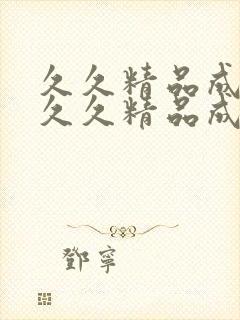 久久精品成
久久精品成
鄧寧